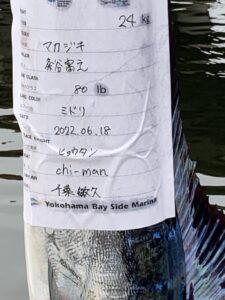 24 kg
マカジキ
LINE CLASS
80 lb
COLOR
ミドリ
2022.06.18
ヒョウタン
chi-man
千葉 敏久
Yokohama Bay Side Marina